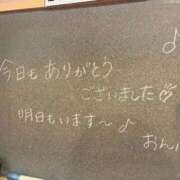 ♪
今日もありがとう
ございました♡
明日もいます〜♪
おん